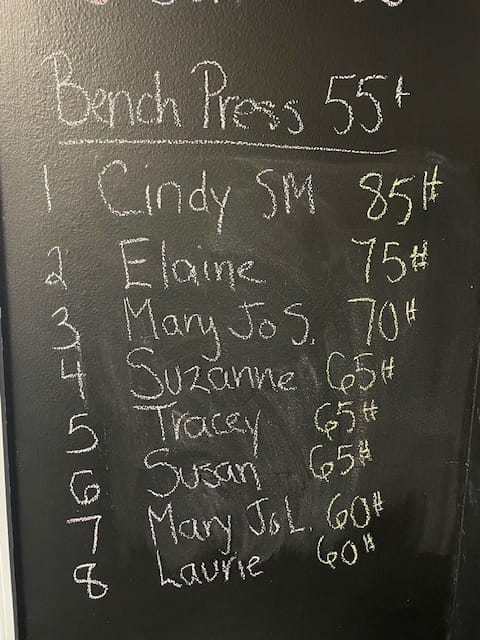 Bench Press 55+
1 Cindy SM 85#
2 Elaine 75#
3 Mary Jo S. 70#
4 Suzanne 65#
5 Tracey 65#
6 Susan 65#
7 Mary Jo L. 60#
8 Laurie 60#